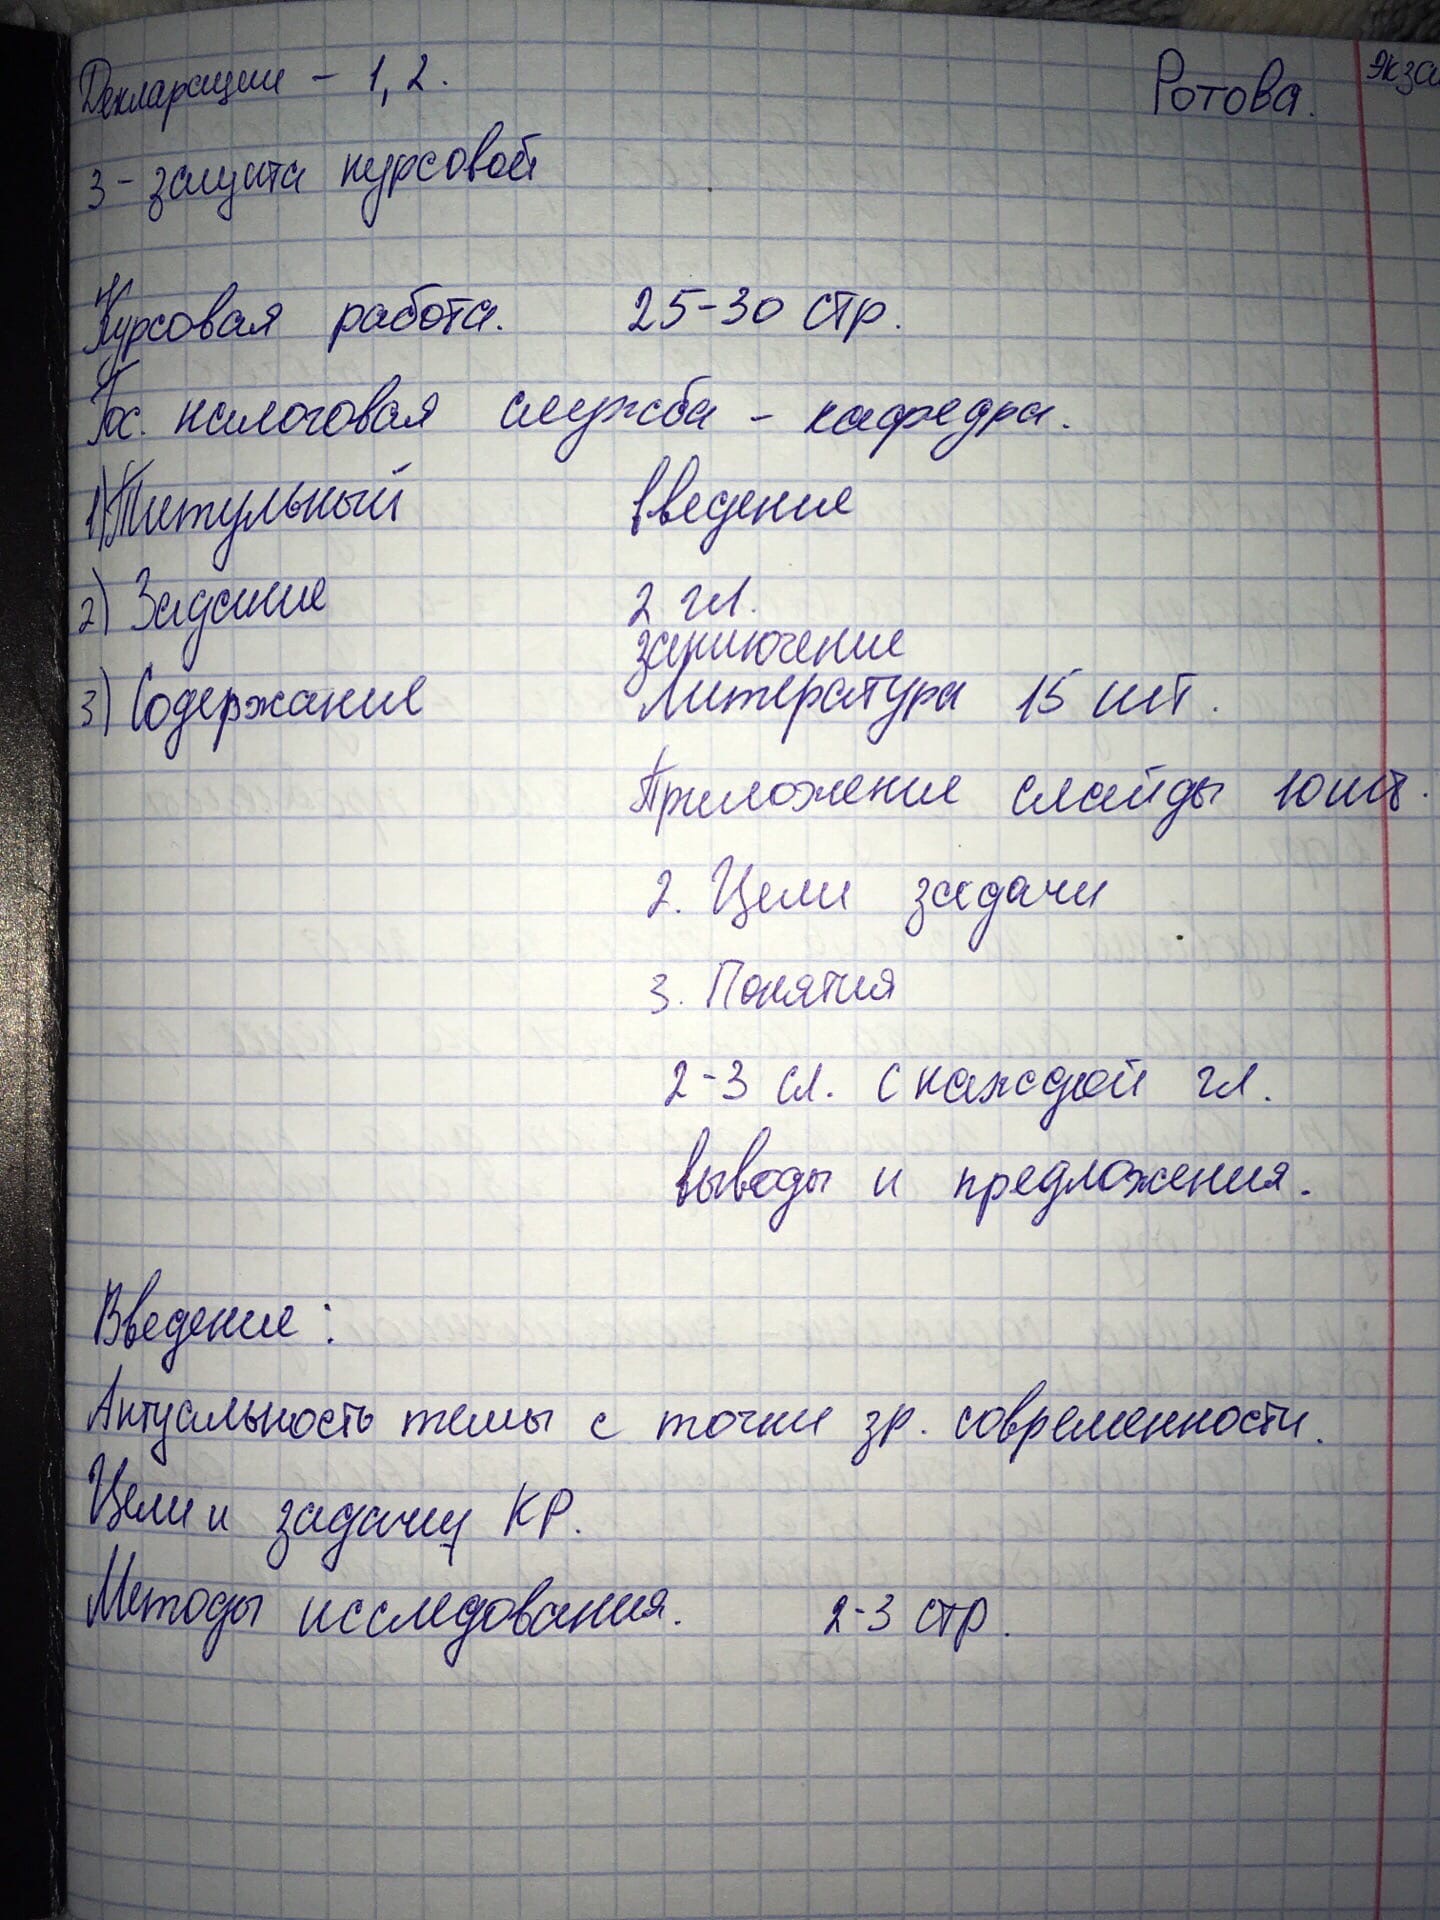 Декларации - 1, 2. Ротова. Экза
3 - защита курсовой
Курсовая работа. 25-30 стр.
Гос. налоговая служба - кафедра.
1) Титульный введение
2) Задание 2 гл.
заключение
3) Содержание Литература 15 шт.
Приложение слайды 10 шт.
2. Цели задачи
3. Понятия
2-3 сл. с каждой гл.
выводы и предложения.
Введение:
Актуальность темы с точки зр. современности.
Цели и задачи КР.
Методы исследования. 2-3 стр.